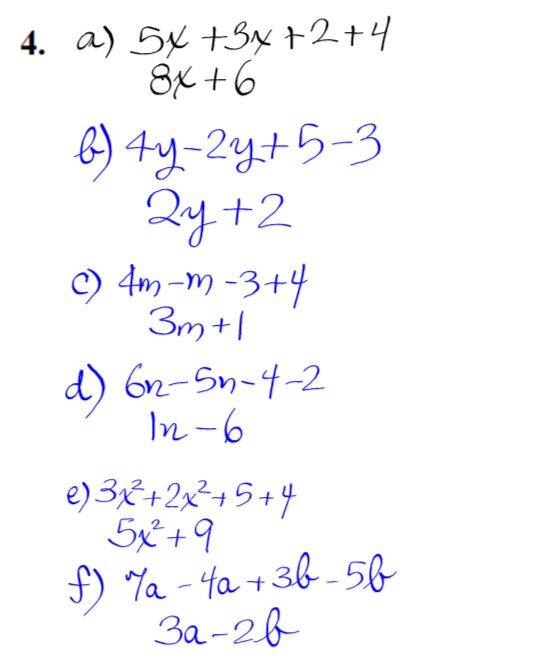 4. a) 5x + 3x + 2 + 4
8x + 6
b) 4y - 2y + 5 - 3
2y + 2
c) 4m - m - 3 + 4
3m + 1
d) 6n - 5n - 4 - 2
1n - 6
e) 3x² + 2x² + 5 + 4
5x² + 9
f) 7a - 4a + 3b - 5b
3a - 2b